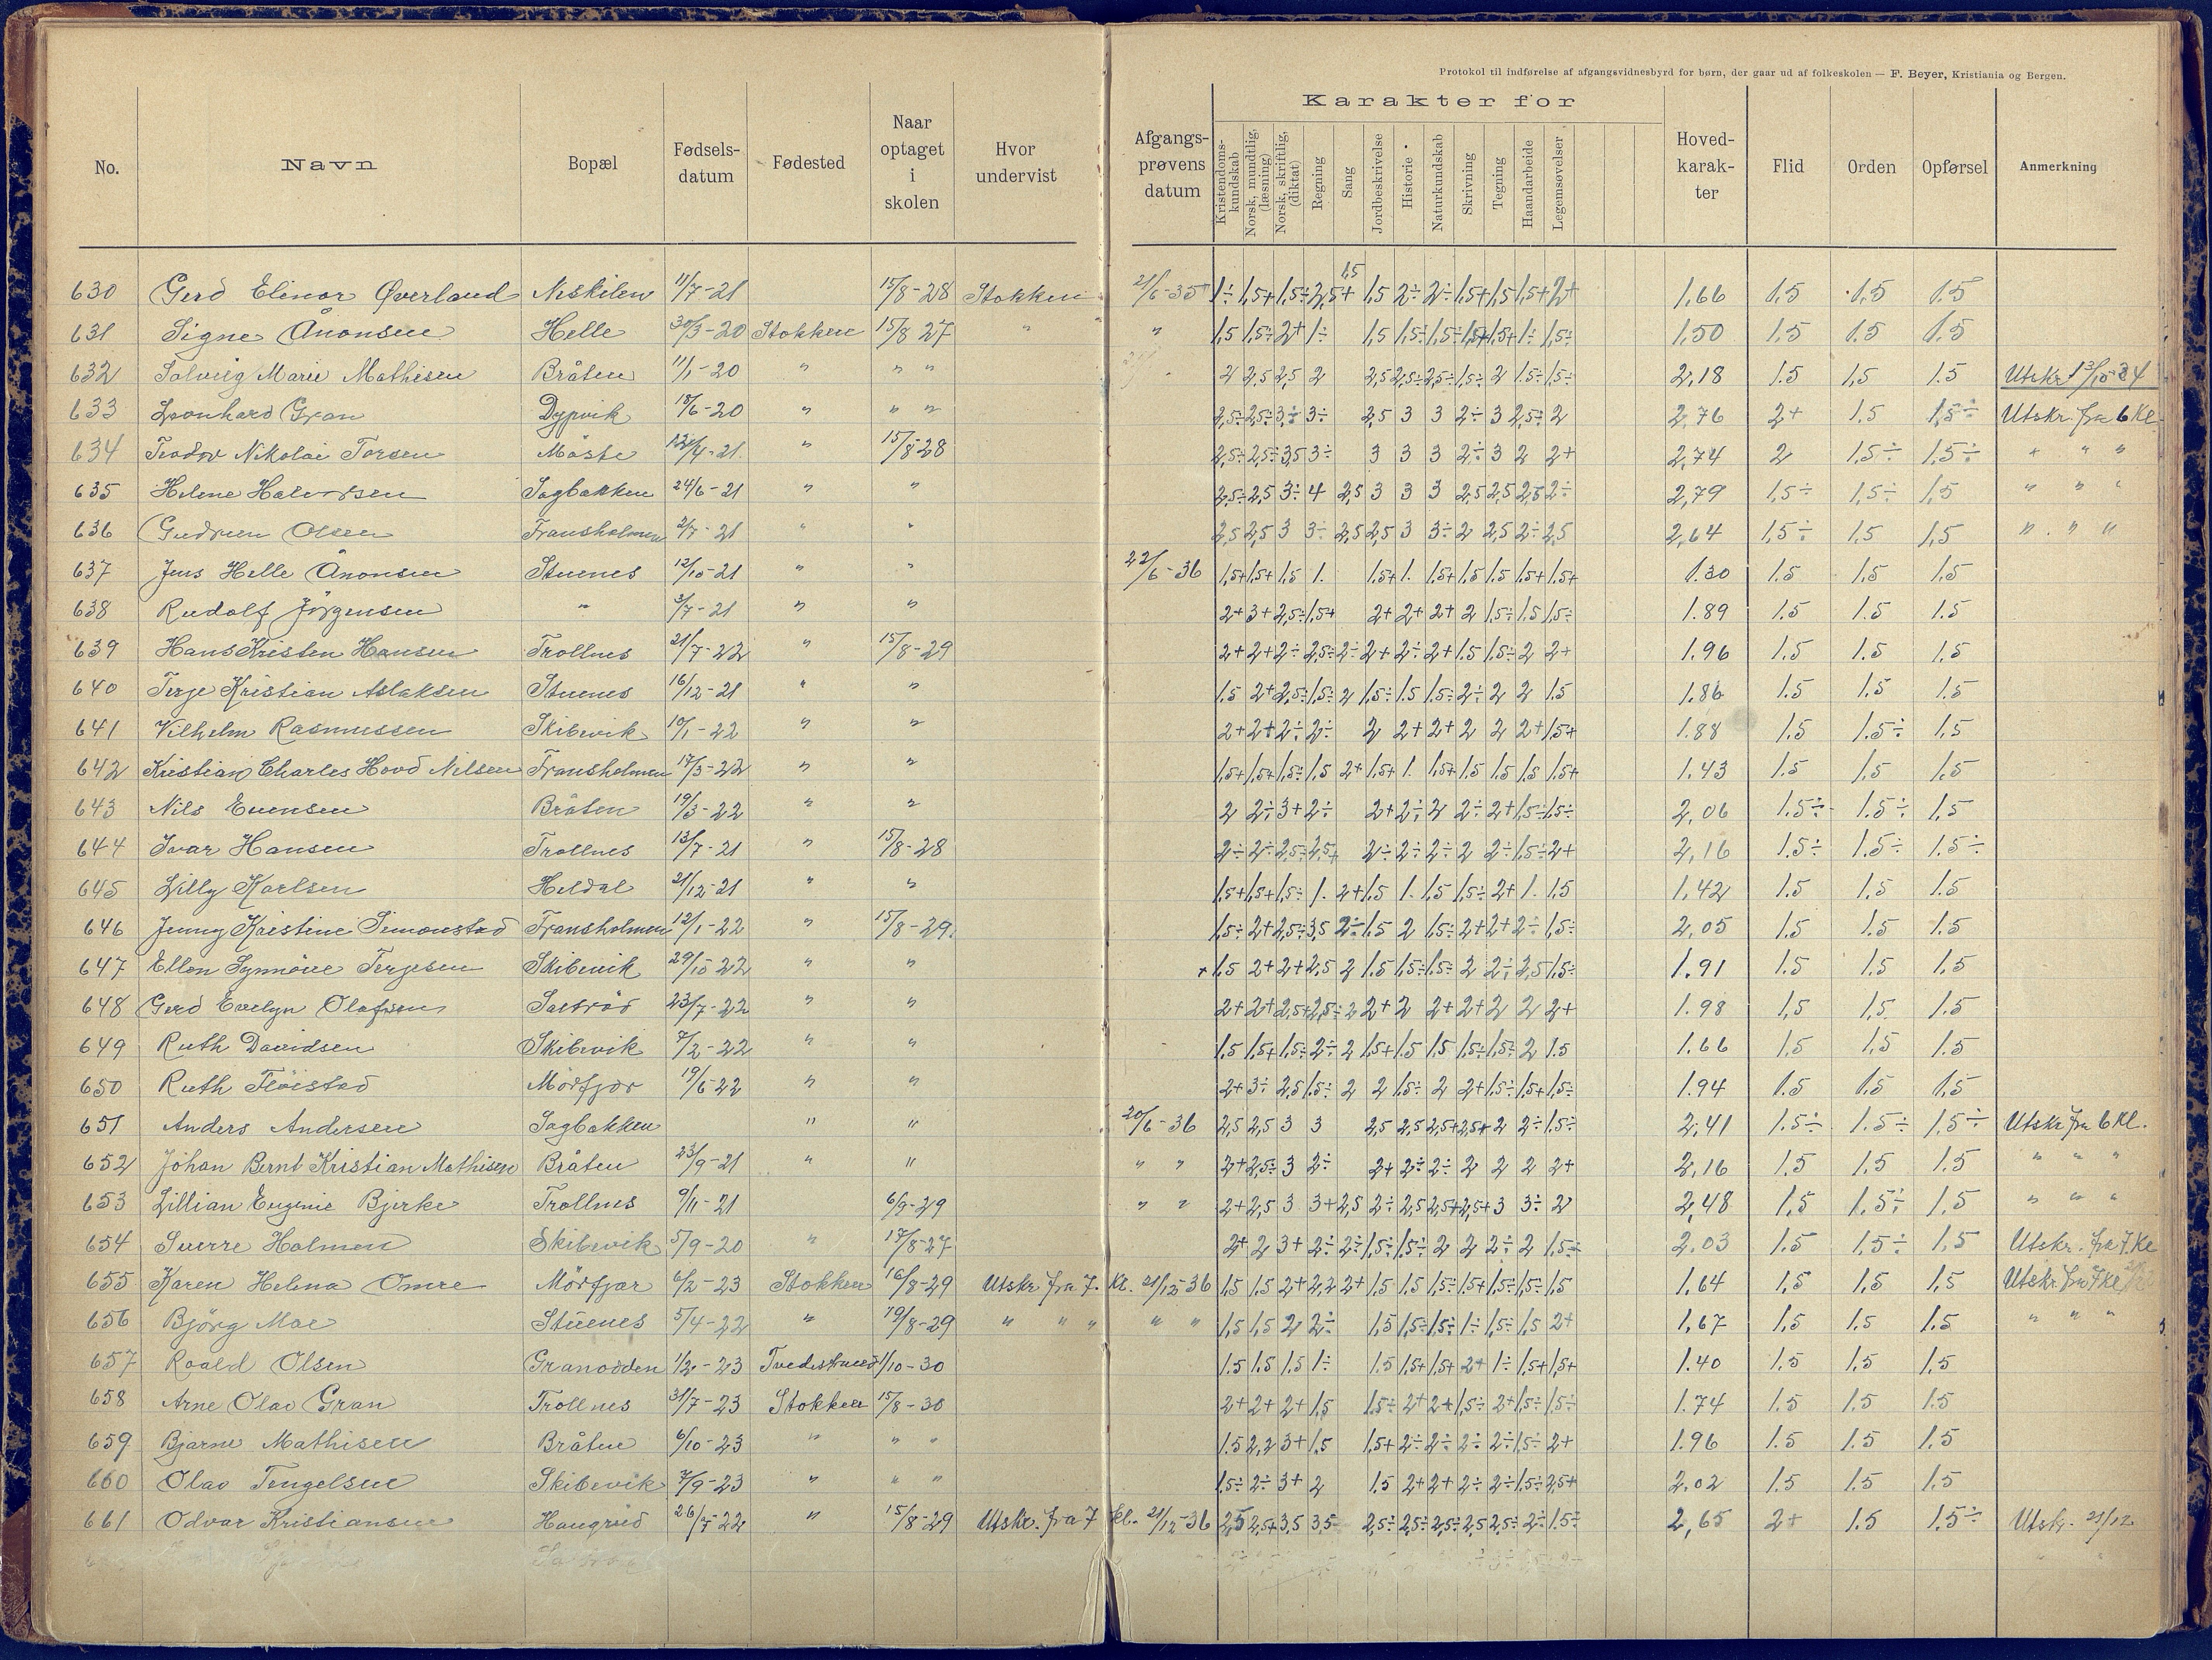 Protokol til indførelse af afgangsvidnesbyrd for børn, der gaar ud af folkeskolen — F. Beyer, Kristiania og Bergen.
Karakter for
No. Navn Bopæl Fødselsdatum Fødested Naar optaget i skolen Hvor undervist Afgangsprøvens datum Kristendomskundskab Norsk, mundtlig, (læsning) Norsk, skriftlig, (diktat) Regning Sang Jordbeskrivelse Historie Naturkundskab Skrivning Tegning Haandarbeide Legemsøvelser Hovedkarakter Flid Orden Opførsel Anmerkning
630 Gerd Elinor Øverland Neskilen 11/7-21 15/8-28 Stokken 21/6-35 1÷ 1,5+ 1,5÷ 2,5+ 1,5 1,5 2÷ 2÷ 1,5+ 1,5 1,5+ 2+ 1,66 1.5 1.5 1.5
631 Signe Ånonsen Helle 30/3-20 Stokken 15/8 27 " " " 1,5 1,5÷ 2+ 1÷ 1,5 1,5÷ 1,5÷ 1,5+ 1,5+ 1÷ 1,5÷ 1,50 1.5 1.5 1.5
632 Solveig Marie Mathisen Bråten 11/1-20 " " " 2 2,5 2,5 2 2,5 2,5÷ 2,5÷ 1,5÷ 2 1.5÷ 1,5÷ 2,18 1.5 1,5 1.5 Utskr.
633 Leonhard Gran Dypvik 18/6-20 " " " 2,5÷ 2,5÷ 3÷ 3÷ 2,5 3 3 2÷ 3 2,5÷ 2 2,76 2+ 1.5 1,5÷ Utskr. fra 6 Kl.
634 Teodor Nikolai Torsen 15/8-28 2,5÷ 2,5÷ 3,5 3÷ 3 3 3 2÷ 3 2 2+ 2,74 2 1,5÷ 1,5÷ " " "
635 Helene Halvorsen Sagbakken 24/6-21 " " 2,5÷ 2,5 3÷ 4 2,5 3 3 3 2,5 2,5 2,5 2÷ 2,79 1,5÷ 1,5÷ 1,5 " " "
636 Gudrun Olsen Fransholmen 2/7-21 " " 2,5 2,5 3 3÷ 2,5 2,5 3 3÷ 2 2,5 2÷ 2,5 2,64 1,5÷ 1,5 1,5 " " "
637 Jens Helle Ånonsen Stuenes 12/10-21 " " 22/6-36 1,5+ 1,5+ 1,5 1. 1,5+ 1. 1,5+ 1,5 1,5 1,5+ 1,5+ 1.30 1.5 1,5 1,5
638 Rudolf Jörgensen " 3/7-21 " " 2+ 3+ 2,5÷ 1,5+ 2+ 2+ 2+ 2 1,5÷ 1,5 1,5÷ 1.89 1.5 1.5 1.5
639 Hans Kristen Hansen Trollnes 21/7-22 " 15/8-29 2+ 2+ 2÷ 2,5÷ 2÷ 2+ 2÷ 2+ 1.5 1,5÷ 2 2+ 1.96 1.5 1.5 1.5
640 Terje Kristian Aslaksen Stuenes 16/12-21 " " 1.5 2+ 2,5÷ 1,5÷ 2 1,5÷ 1.5 1,5÷ 2÷ 2 2 1.5 1.86 1.5 1.5 1.5
641 Vilhelm Rasmussen Skibevik 10/1-22 " " 2+ 2+ 2÷ 2÷ 2 2+ 2+ 2 2 2+ 1,5+ 1.88 1.5 1.5÷ 1,5
642 Kristian Charles Hovd Nilsen Fransholmen 17/3-22 " " 1,5+ 1,5+ 1,5÷ 1,5 2+ 1,5+ 1. 1,5+ 1.5 1,5 1,5 1,5+ 1,43 1.5 1,5 1,5
643 Nils Evensen Bråten 19/3-22 " " 2 2÷ 3+ 2÷ 2+ 2÷ 2 2÷ 2+ 1,5÷ 1,5÷ 2,06 1.5÷ 1.5÷ 1,5
644 Ivar Hansen Trollnes 13/7-21 " 15/8-28 2÷ 2÷ 2,5÷ 2,5+ 2÷ 2÷ 2÷ 2 2÷ 1,5÷ 2+ 2,16 1.5÷ 1.5÷ 1.5÷
645 Lilly Karlsen Heldal 21/12-21 " " 1,5+ 1,5+ 1,5÷ 1. 2+ 1,5 1. 1,5 1,5÷ 2+ 1. 1.5 1,42 1.5 1.5 1.5
646 Jenny Kristine Simonstad Fransholmen 12/1-22 " 15/8-29. 1,5÷ 2+ 2,5÷ 3,5 2÷ 1.5 2 1,5÷ 2+ 2+ 2÷ 1,5÷ 2,05 1.5 1.5 1.5
647 Ellen Synnöve Terjesen Skibevik 29/10 22 " " + 1,5 2+ 2+ 2,5 2 1,5 1,5÷ 1,5÷ 2 2÷ 2,5 1.5÷ 1.91 1.5 1.5 1.5
648 Gerd Evelyn Olafsen 23/7-22 " " 2+ 2+ 2,5+ 2,5÷ 2 2+ 2 2+ 2+ 2 2 2+ 1.98 1,5 1,5 1.5
649 Ruth Davidsen Skibevik 7/2-22 " " 1.5 1,5+ 1,5÷ 2÷ 2 1,5+ 1.5 1.5 1,5÷ 1,5÷ 2 1.5 1.66 1,5 1,5 1.5
650 Ruth Flöistad Mörfjær 19/6-22 " " 2+ 3÷ 2,5 1,5÷ 2 2 1.5÷ 2 2+ 1,5÷ 1,5+ 1,5÷ 1.94 1.5 1.5 1.5
651 Anders Andersen Sagbakken " " 20/6-36 2,5 2,5 3 3 2,5 2,5 2,5+ 2,5+ 2 2÷ 1.5÷ 2,41 1.5÷ 1.5÷ 1,5÷ Utskr. fra 6 Kl.
652 Johan Bernt Kristian Mathisen Bråten 23/9-21 " " " " 2+ 2,5÷ 3 2÷ 2+ 2÷ 2÷ 2 2 2 2+ 2,16 1.5 1.5 1.5 " " "
653 Lillian Eugenie Bjerke Trollnes 9/11-21 6/9-29 " " 2+ 2,5 3 3+ 2,5 2÷ 2,5 2,5+ 2,5+ 3 3÷ 2 2,48 1,5 1,5÷ 1,5 " " "
654 Sverre Holmen Skibevik 5/9-20 " 17/8-27 2+ 2 3+ 2÷ 2÷ 1,5÷ 1,5÷ 2 2 2÷ 2 1,5÷ 2.03 1.5 1,5÷ 1,5 Utskr. fra 7. Kl
655 Karen Helena Omre Mörfjær 6/2-23 Stokken 16/8-29 Utskr fra 7. Kl. 21/12-36 1,5 1.5 2+ 2,2 2+ 1.5 1.5 1,5÷ 1,5+ 1,5÷ 1,5÷ 1,5 1,64 1,5 1,5 1,5 Utskr. fra 7 kl.
656 Björg Moe Stuenes 5/4-22 " 19/8-29 " " " " " 1,5 1,5 2 2÷ 1,5 1,5÷ 1,5÷ 1÷ 1,5÷ 1,5 2+ 1,67 1,5 1.5 1.5 " " "
657 Roald Olsen Granodden 1/2-23 Tvedestrand 1/10-30 1.5 1.5 1,5 1÷ 1.5 1,5+ 1,5+ 2+ 1÷ 1,5+ 1,5+ 1.40 1,5 1,5 1,5
658 Arne Olav Gran Trollnes 31/7-23 Stokken 15/8-30 2+ 2+ 2+ 1,5 1,5÷ 2+ 2+ 1,5÷ 2+ 1,5÷ 1,5÷ 1.74 1.5 1.5 1.5
659 Bjarne Mathisen Bråten 6/10-23 " " " 1.5 2,2 3+ 1,5 1,5+ 2÷ 2÷ 2÷ 2÷ 1,5÷ 2+ 1.96 1.5 1.5 1.5
660 Olav Tengelsen Skibevik 7/9-23 " " " 1.5÷ 2÷ 3+ 2 1.5 2+ 2+ 2÷ 2÷ 1.5÷ 2,5+ 2.02 1.5 1.5 1.5
661 Odvar Kristiansen Haugrud 26/7-22 " 15/8-29 Utskr. fra 7 kl. 21/12-36 2,5 2,5+ 3,5 3,5 2,5÷ 2,5÷ 2,5÷ 2,5 2,5÷ 2÷ 1.5÷ 2,65 2+ 1.5 1.5÷ Utskr. 21/12